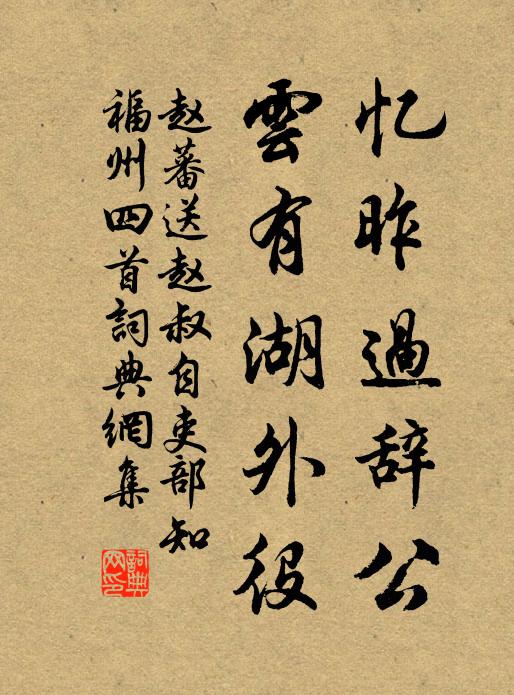 忆昨過辞公
雲有湖外役
赵蕃送赵叔自吏部知
福州四首詞典網集
詞典
网印